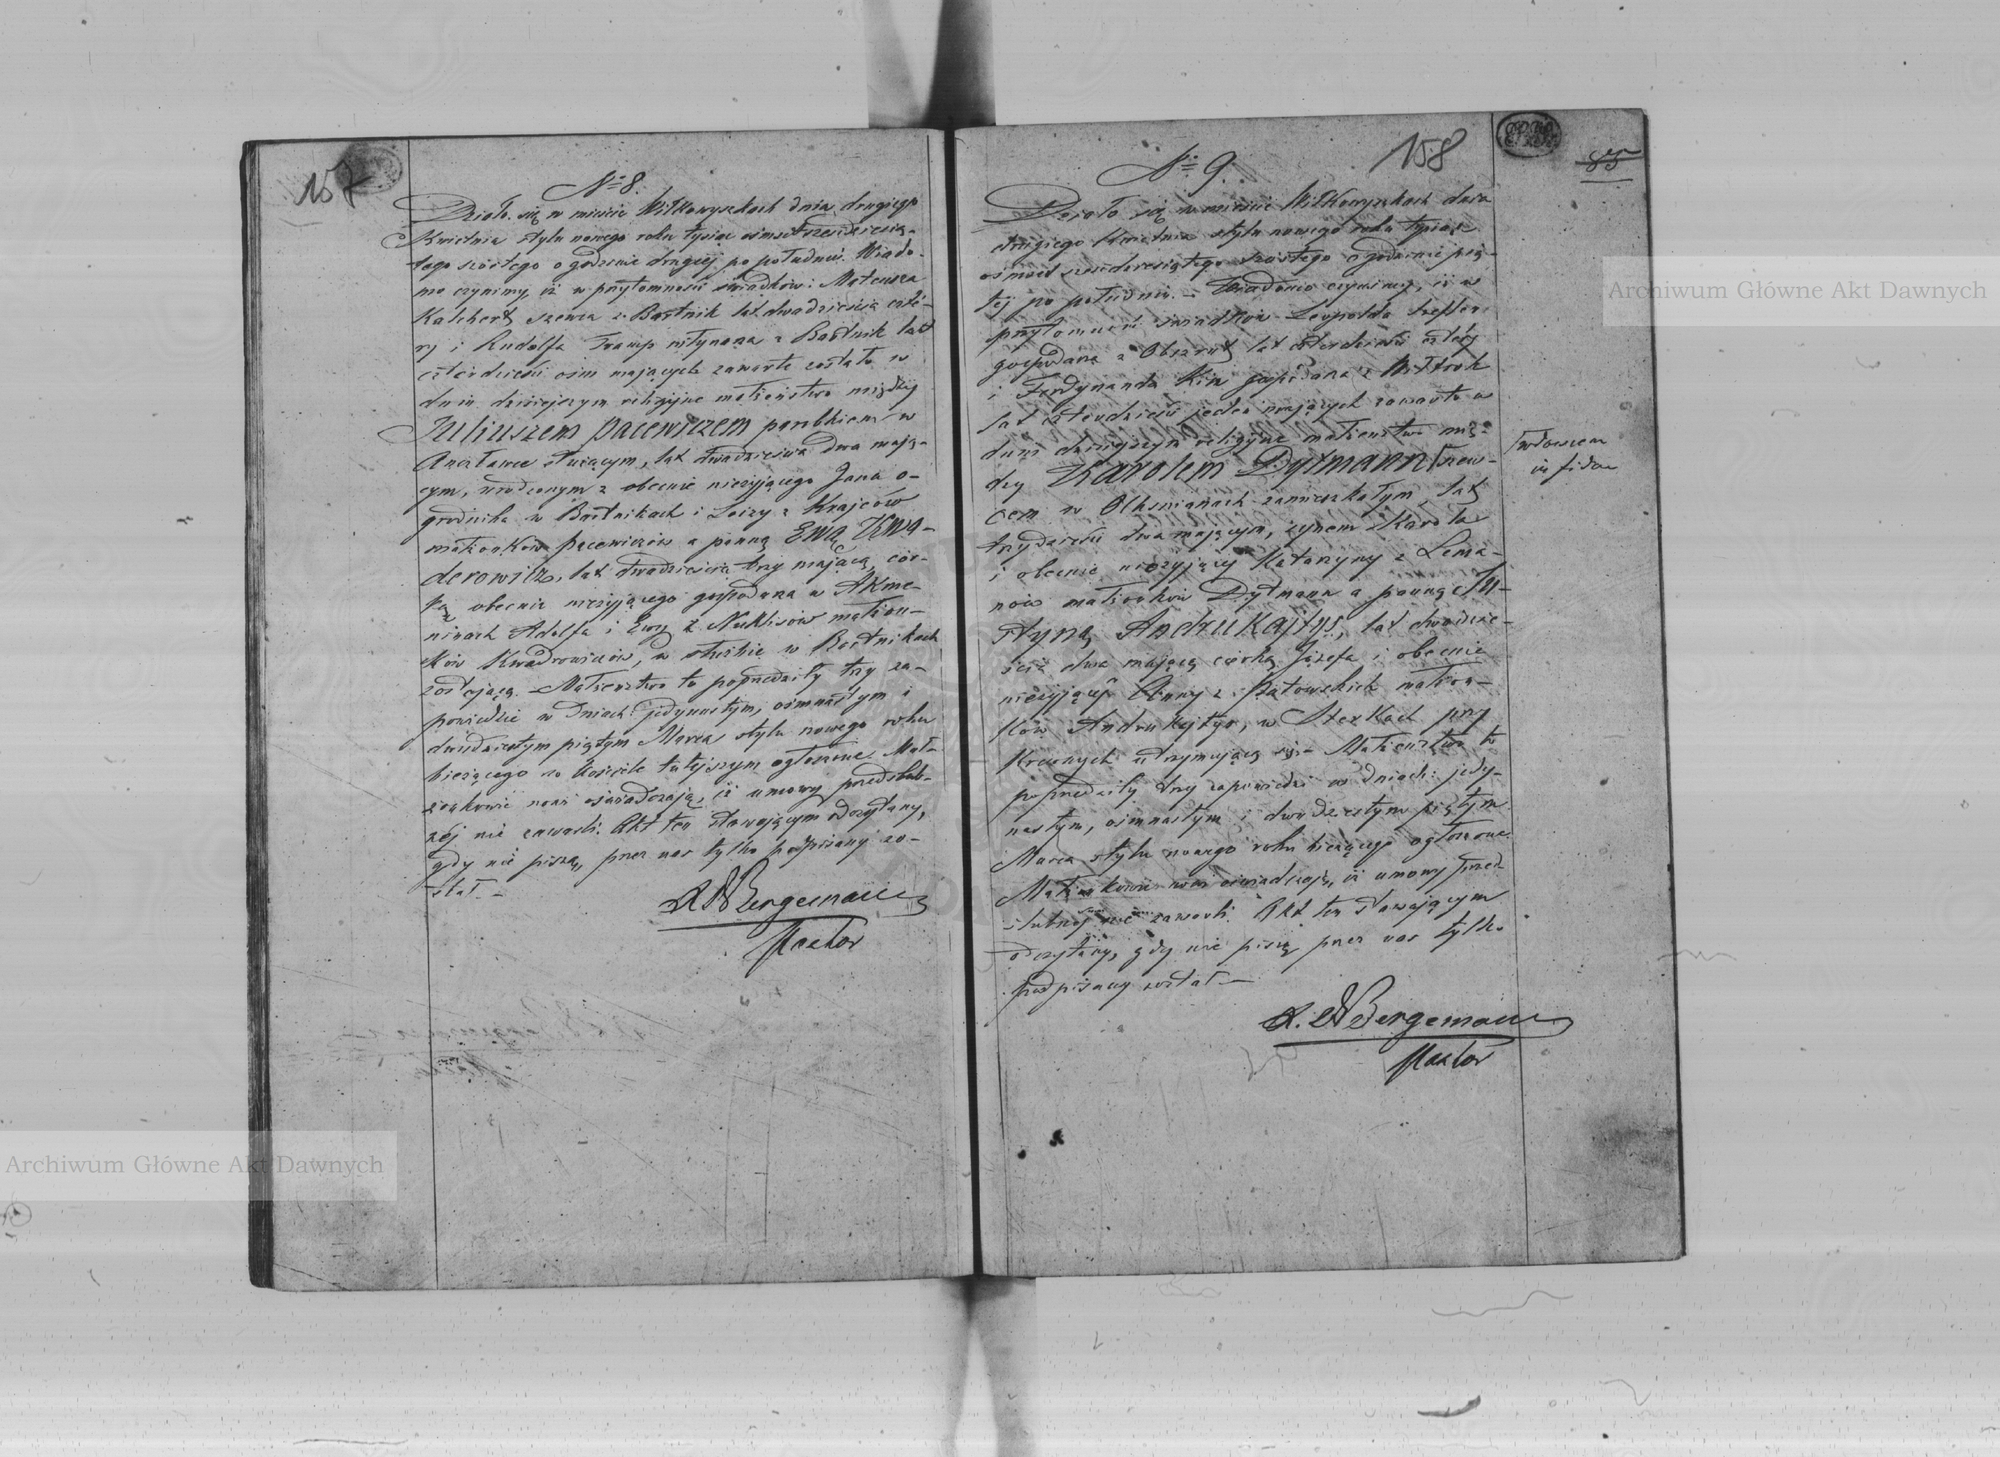 157
No 8.
Działo się w mieście Wiłkowyszkach dnia drugiego
Kwietnia stylu nowego roku tysiąc ośmset sześćdziesią-
tego szóstego o godzinie drugiej po południu. Wiado-
mo czynimy, iż w przytomności świadków: Mateusza
Kalchert szewca z Bartnik lat dwadzieścia czte-
ry i Rudolfa Tramp młynarza z Bartnik lat
czterdzieści ośm mających zawarte zostało w
dniu dzisiejszym religijne małżeństwo między
Juliuszem Pacewiczem parobkiem w
służącym, lat dwadzieścia dwa mają-
cym, urodzonym z obecnie nieżyjącego Jana o-
grodnika w Bartnikach i Loizy z Krajców
małżonków Pacewiczów a panną Ewą Kwa-
derowicz, lat dwadzieścia trzy mającą, cór-
ką obecnie nieżyjącego gospodarza w Akme-
ninach Adolfa i Ewy z małżon-
ków Kwadrowiczów, w służbie w Bartnikach
zostającą. – Małżeństwo to poprzedziły trzy za-
powiedzie w dniach: jedynastym, ośmnastym i
dwudziestym piątym Marca stylu nowego roku
bieżącego w Kościele tutejszym ogłoszone. Mał-
żonkowie nowi oświadczają, iż umowy przedślub-
nej nie zawarli. Akt ten stawającym odczytany,
gdy nie piszą, przez nas tylko podpisany zo-
stał. –
R. A. Bergemann
Pastor
158
85
No 9.
Działo się w mieście Wiłkowyszkach dnia
drugiego Kwietnia stylu nowego roku tysiąc
ośmset sześćdziesiątego szóstego o godzinie pią-
tej po południu. – Wiadomo czynimy, iż w
przytomności świadków Leopolda Szefler
gospodarza z Obszrut lat czterdzieści cztery
i Ferdynanda Kin gospodarza z Wisztok
lat czterdzieści jeden mających zawarto w
dniu dzisiejszym religijne małżeństwo mię-
dzy Karolem Dytmann szew-
cem w Olksnianach zamieszkałym, lat
trzydzieści dwa mającym, synem Karola
i obecnie nieżyjącej Katarzyny z Lema-
nów małżonków Dytmann a panną Ju-
styną Andrukajtys, lat dwadzie-
ścia dwa mającą córką Józefa i obecnie
nieżyjącej Anny z małżon-
ków Andrukajtys, w przy
krewnych utrzymującą się. – Małżeństwo to
poprzedziły trzy zapowiedzi w dniach: jedy-
nastym, ośmnastym i dwudziestym piątym
Marca stylu nowego roku bieżącego ogłoszone
Małżonkowie nowi oświadczają, iż umowy przed-
ślubnej nie zawarli. Akt ten stawającym
odczytany, gdy nie piszą, przez nas tylko
podpisany został –
R. A. Bergemann
Pastor
wdowcem
in fidem
Archiwum Główne Akt Dawnych
Archiwum Główne Akt Dawnych